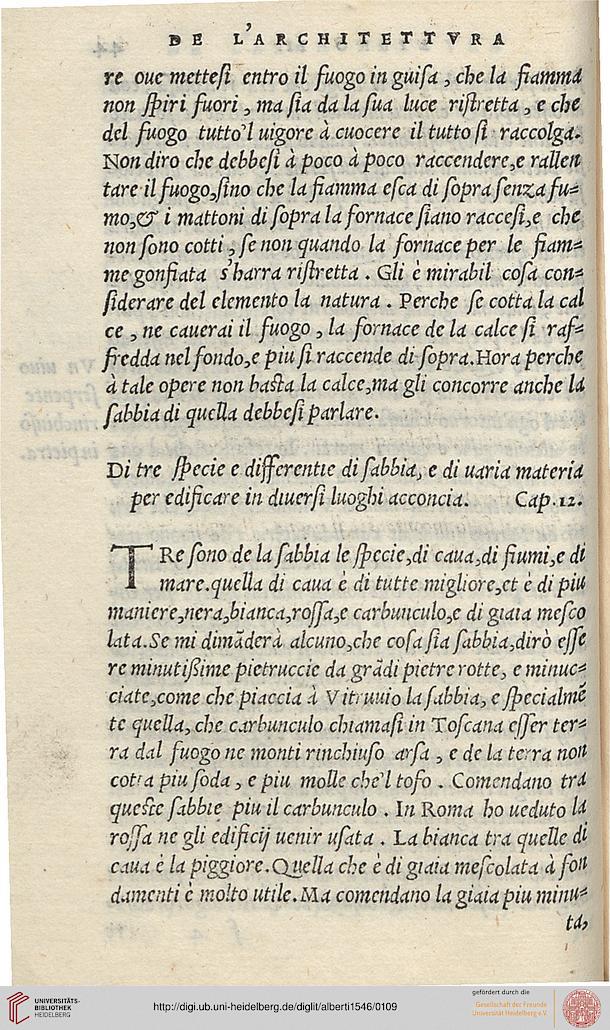 DE L'ARCHITETTVRA
re oue mettesi entro il fuogo in guisa, che la fiamma
non spiri fuori, ma sia da la sua luce ristretta, e che
del fuogo tutto'l uigore à cuocere il tutto si raccolga.
Non diro che debbesi à poco à poco raccendere,e rallen
tare il fuogo,sino che la fiamma esca di sopra senza fu=
mo,& i mattoni di sopra la fornace siano raccesi,e che
non sono cotti, se non quando la fornace per le fiam=
me gonfiata s'harra ristretta. Gli è mirabil cosa con=
siderare del elemento la natura. Perche se cotta la cal
ce, ne cauerai il fuogo, la fornace de la calce si raf=
fredda nel fondo,e piu si raccende di sopra.Hora perche
à tale opere non basta la calce,ma gli concorre anche la
sabbia di quella debbesi parlare.
Di tre specie e differentie di sabbia, e di uaria materia
per edificare in diuersi luoghi acconcia. Cap.12.
TRe sono de la sabbia le specie,di caua,di fiumi,e di
mare.quella di caua è di tutte migliore,et è di piu
maniere,nera,bianca,rossa,e carbunculo,e di giaia mesco
lata.Se mi dimāderà alcuno,che cosa sia sabbia,dirò esse
re minutißime pietruccie da grādi pietre rotte, e minuc=
ciate,come che piaccia à Vitruuio la sabbia, e specialmē
te quella, che carbunculo chiamasi in Toscana esser ter=
ra dal fuogo ne monti rinchiuso arsa, e de la terra non
cotta piu soda, e piu molle che'l tofo. Comendano tra
queste sabbie piu il carbunculo. In Roma ho ueduto la
rossa ne gli edificij uenir usata. La bianca tra quelle di
caua è la piggiore.Quella che è di giaia mescolata à fon
damenti è molto utile.Ma comendano la giaia piu minu=
ta,
UNIVERSITÄTS-
BIBLIOTHEK
HEIDELBERG
http://digi.ub.uni-heidelberg.de/diglit/alberti1546/0109
gefördert durch die
Gesellschaft der Freunde
Universität Heidelberg e.V.